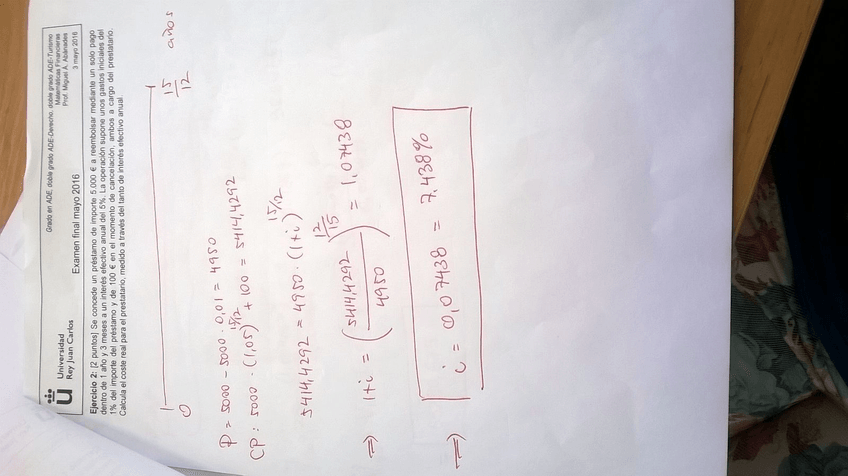 Universidad
Rey Juan Carlos
Grado en ADE, doble grado ADE-Derecho, doble grado ADE-Turismo
Matemáticas Financieras
Prof. Miguel Á. Abánades
Examen final mayo 2016
3 mayo 2016
Ejercicio 2: [2 puntos] Se concede un préstamo de importe 5.000 € a reembolsar mediante un solo pago
dentro de 1 año y 3 meses a un interés efectivo anual del 5%. La operación supone unos gastos iniciales del
1% del importe del préstamo y de 100 € en el momento de cancelación, ambos a cargo del prestatario.
Calcula el coste real para el prestatario, medido a través del tanto de interés efectivo anual.
0 15/12 años
P = 5000 - 5000 · 0,01 = 4950
CP: 5000 · (1,05)^15/12 + 100 = 5414,4292
5414,4292 = 4950 · (1+i)^15/12
⇒ 1+i = (5414,4292/4950)^12/15 = 1,07438
⇒ i = 0,07438 = 7.438%